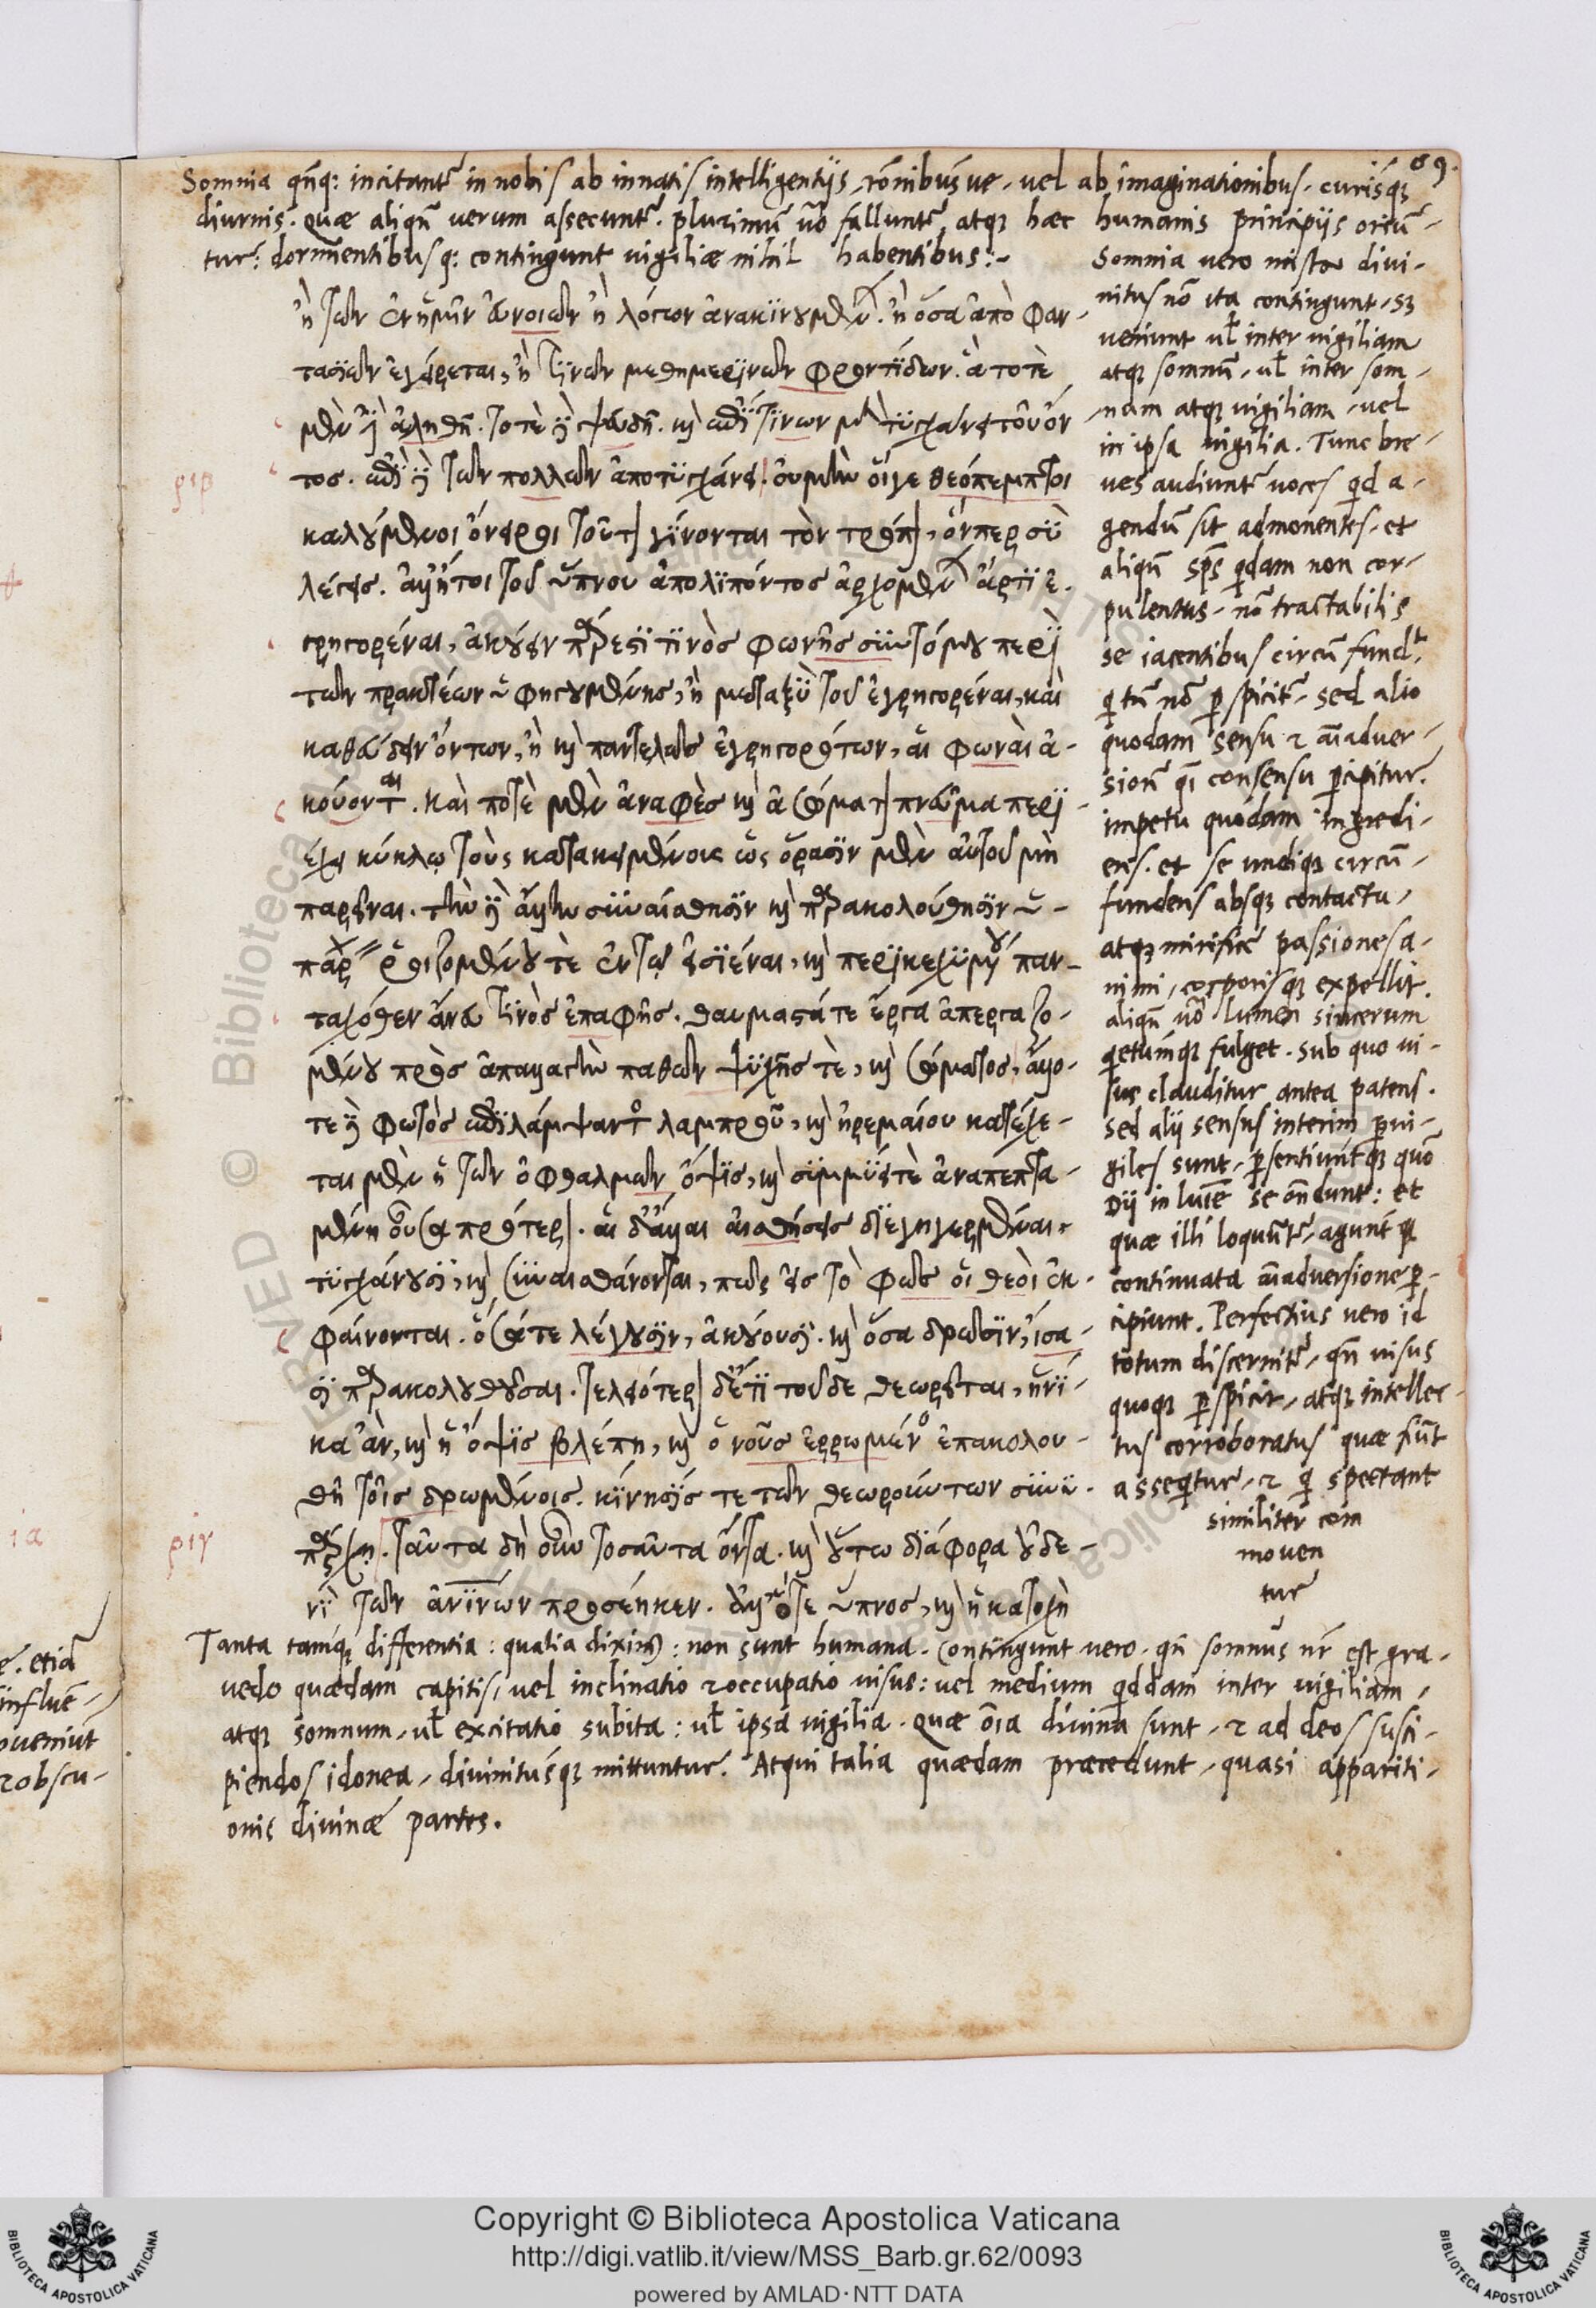 69.
Somnia qñq: incitantr̃ in nobis ab innatis intelligentijs, rõnibusue, uel ab imaginationibus, curisq;
diurnis. Quæ aliqñ uerum assecuntr̃. plurimũ uõ falluntr̃, atq; hæc humanis principijs oriũ-
tur: dormientibusq: contingunt uigiliæ nihil habentibus:-
ἢ τῶν ἐν ἡμῖν ἐννοιῶν ἢ λόγων ἀνακινουμένων. ἢ ὅσα ἀπὸ φαν-
τασιῶν ἐγείρεται, ἢ τινῶν μεθημερινῶν φροντίδων. ἃ τοτὲ
μὲν ἐστὶν ἀληθῆ. τοτὲ δὲ ψευδῆ. καὶ ἐπί τινων μὲν τυγχάνει τοῦ ὄν
τος. ἐπὶ δὲ τῶν πολλῶν ἀποτυγχάνει. οὐ μὴν οἵγε θεόπεμπτοι
καλούμενοι ὄνειροι τοῦτον γίνονται τὸν τρόπον, ὅνπερ σὺ
λέγεις. ἀλλ' ἤτοι τοῦ ὕπνου ἀπολιπόντος ἀρχομένων ἄρτι ἐ-
γρηγορέναι, ἀκούειν πάρεστί τινὸς φωνῆς συντόμου περὶ
τῶν πρακτέων ὑφηγουμένης, ἢ μεταξὺ τοῦ ἐγρηγορέναι, καὶ
καθεύδειν ὄντων, ἢ καὶ παντελῶς ἐγρηγορότων, αἱ φωναὶ ἀ-
κούονται. καὶ ποτὲ μὲν ἀναφὲς καὶ ἀσώματον πνεῦμα περι
έχει κύκλῳ τοὺς κατακειμένους ὡς ὅρασιν μὲν αὐτοῦ μὴ
παρεῖναι. τὴν δὲ ἄλλην συναίσθησιν καὶ παρακολούθησιν ὑ-
πάρχειν ῥοιζομένου τὲ ἐν τῷ εἰσιέναι, καὶ περικεχυμένου παν-
ταχόθεν ἄνευ τινὸς ἐπαφῆς. θαυμαστά τε ἔργα ἀπεργαζο-
μένου πρὸς ἀπαλλαγὴν παθῶν ψυχῆς τὲ, καὶ σώματος, ἄλλο-
τε δὲ φωτὸς ἐπιλάμψαντος λαμπροῦ, καὶ ἠρεμαίου κατέχε-
ται μὲν ἡ τῶν ὀφθαλμῶν ὄψις, καὶ συμμύει τὲ ἀναπεπτα-
μένη οὖσα πρότερον. αἱ δ' ἄλλαι αἰσθήσεις διεγηγερμέναι
τυγχάνουσι, καὶ συναισθάνονται, πῶς εἰς τὸ φῶς οἱ θεοὶ ἐκ-
φαίνονται. ὅσα τε λέγουσιν, ἀκούουσι. καὶ ὅσα δρῶσιν, ἴσα-
σι παρακολουθοῦσαι. τελειότερον δ' ἔτι τοῦδε θεωρεῖται, ἡνί-
κα ἂν, καὶ ἡ ὄψις βλέπῃ, καὶ ὁ νοῦς ἐρρωμένος ἐπακολου-
θῇ τοῖς δρωμένοις. κίνησίς τε τῶν θεωρούντων συνυ-
πάρχῃ. ταῦτα δὴ οὖν τοσαῦτα ὄντα. καὶ οὕτω διάφορα οὐδε-
νὶ τῶν ἀνθρωπίνων προσέοικεν. ἀλλ' ὅτε ὕπνος, καὶ ἡ κατοχὴ
Somnia uero missa diui-
nitus nõ ita contingunt, sʒ
ueniunt ul̃ inter uigiliam
atq; somnũ, ul̃ inter som-
num atq; uigiliam, uel
in ipsa uigilia. Tunc bre-
ues audiuntr̃ uoces qd a-
gendũ sit admonentes, et
aliqñ sp̃s qdam non cor-
pulentus, nõ tractabilis
se iacentibus circũ fundt.
q tũ nõ p spicitr̃, sed alio
quodam sensu ⁊ aĩaduer-
sionẽ qi consensu pcipitur.
impetu quodam ingredi-
ens. et se undiq; circũ-
fundens absq; contactu,
atq; mirificẽ passiones a-
nimi, corporisq; expellit.
aliqñ uõ lumen sincerum
qetumq; fulget. sub quo ui-
sus clauditur antea patens.
sed alij sensus interim pui-
giles sunt, psentiuntq; quõ
Dij in lucẽ se oñdunt: et
quæ illi loquũtr̃, agunt
continuata aĩaduersione p-
cipiunt. Perfectius uero id
totum discernitr̃, qñ uisus
quoq; pspicit, atq; intellec-
tus corroboratus quæ fiũt
asseqtur, ⁊ q spectant
similiter com
mouen
tur
Tanta tamq; differentia: qualia diximꝰ: non sunt humana. Contingunt uero, qñ somnus nr̃ est gra-
uedo quædam capitis, uel inclinatio ⁊ occupatio uisus: uel medium qddam inter uigiliam,
atq; somnum, ul̃ excitatio subita: ul̃ ipsa uigilia. Quæ oĩa diuina sunt, ⁊ ad deos susci-
piendos idonea, diuinitusq; mittuntur. Atqui talia quædam præcedunt, quasi appariti-
onis diuinæ partes.
ριβ
ριγ
ια
etiã
influẽ-
oueniũt
⁊obscu-
© Biblioteca Apostolica Vaticana
Copyright © Biblioteca Apostolica Vaticana
http://digi.vatlib.it/view/MSS_Barb.gr.62/0093
powered by AMLAD·NTT DATA
BIBLIOTECA APOSTOLICA VATICANA
BIBLIOTECA APOSTOLICA VATICANA